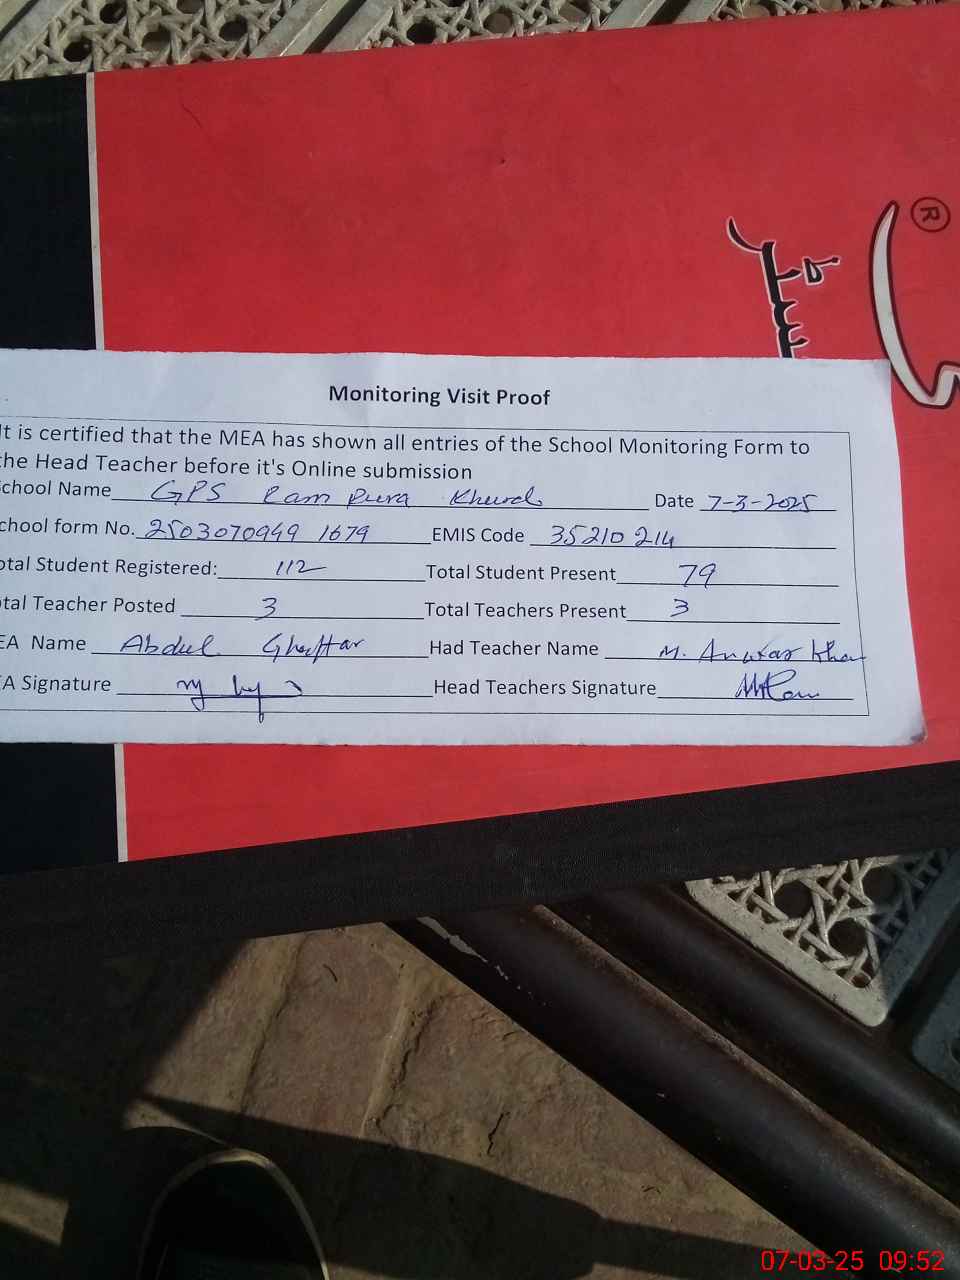 ®
Monitoring Visit Proof
It is certified that the MEA has shown all entries of the School Monitoring Form to
the Head Teacher before it's Online submission
chool Name GPS Ram Pura Khurd Date 7-3-2025
chool form No. 2503070949 1679 EMIS Code 35210 214
otal Student Registered: 112 Total Student Present 79
tal Teacher Posted 3 Total Teachers Present 3
EA Name Abdul Ghaffar Had Teacher Name M. Anwar Khan
EA Signature Head Teachers Signature
07-03-25 09:52